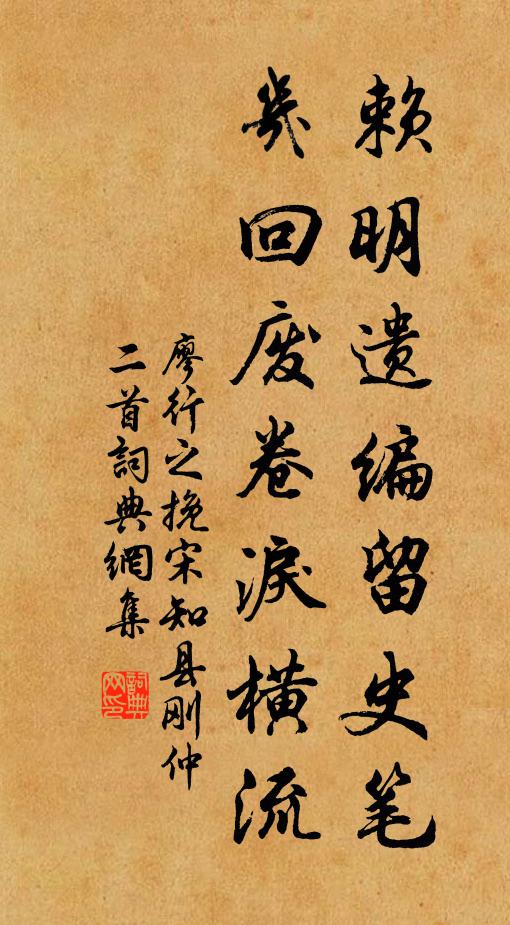 赖明遗编留史笔
几回废卷淚横流
廖行之挽宋知县刚仲
二首詞典網集
詞典网印